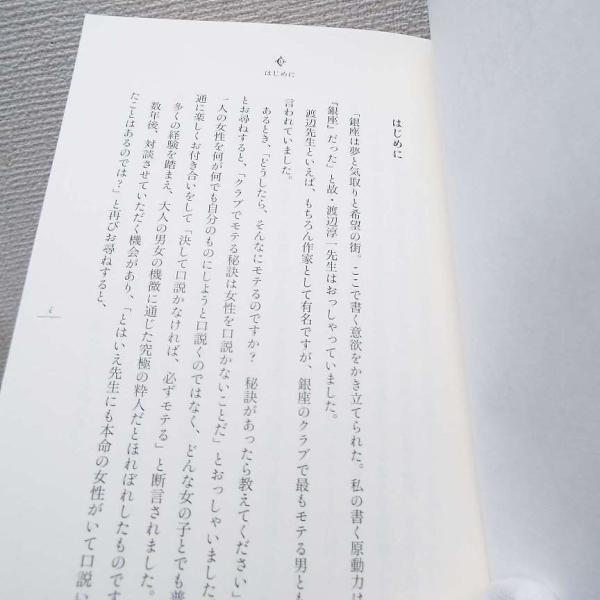 はじめに
はじめに
「銀座は夢と気取りと希望の街。ここで書く意欲をかき立てられた。私の書く原動力は
『銀座』だった」と故・渡辺淳一先生はおっしゃっていました。
渡辺先生といえば、もちろん作家として有名ですが、銀座のクラブで最もモテる男とも
言われていました。
あるとき、「どうしたら、そんなにモテるのですか？　秘訣があったら教えてください」
とお尋ねすると、「クラブでモテる秘訣は女性を口説かないことだ」とおっしゃいました
一人の女性を何が何でも自分のものにしようと口説くのではなく、どんな女の子とでも普
通に楽しくお付き合いをして「決して口説かなければ、必ずモテる」と断言されました。
多くの経験を踏まえ、大人の男女の機微に通じた究極の粋人だとほれぼれしたものです
数年後、対談させていただく機会があり、「とはいえ先生にも本命の女性がいて口説い
たことはあるのでは？」と再びお尋ねすると、
i